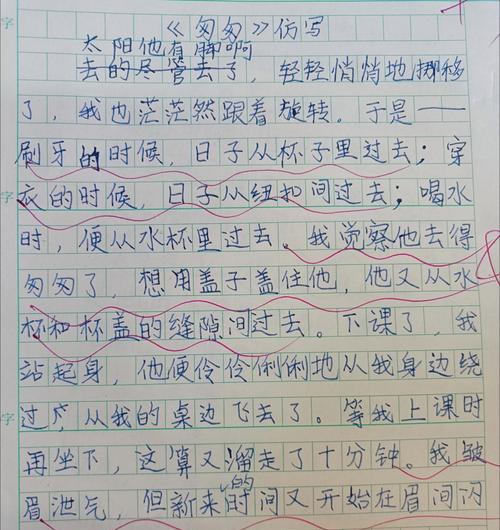 《匆匆》仿写
太阳他有脚啊
去的尽管去了，轻轻悄悄地挪移
了，我也茫茫然跟着旋转。于是——
刷牙的时候，日子从杯子里过去；穿
衣的时候，日子从纽扣间过去；喝水
时，便从水杯里过去。我觉察他去得
匆匆了，想用盖子盖住他，他又从水
杯和杯盖的缝隙间过去。下课了，我
站起身，他便伶伶俐俐地从我身边绕
过，从我的桌边飞去了。等我上课时
再坐下，这算又溜走了十分钟。我皱
眉泄气，但新来的时间又开始在眉间闪
字
字
字